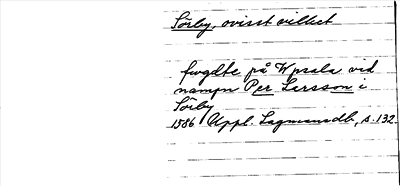 Sörby, ovisst vilket
fwgdte på Wpsala vid
nampn Per Larsson i
Sörby
1586 Uppl. Lagmansdb, s. 132